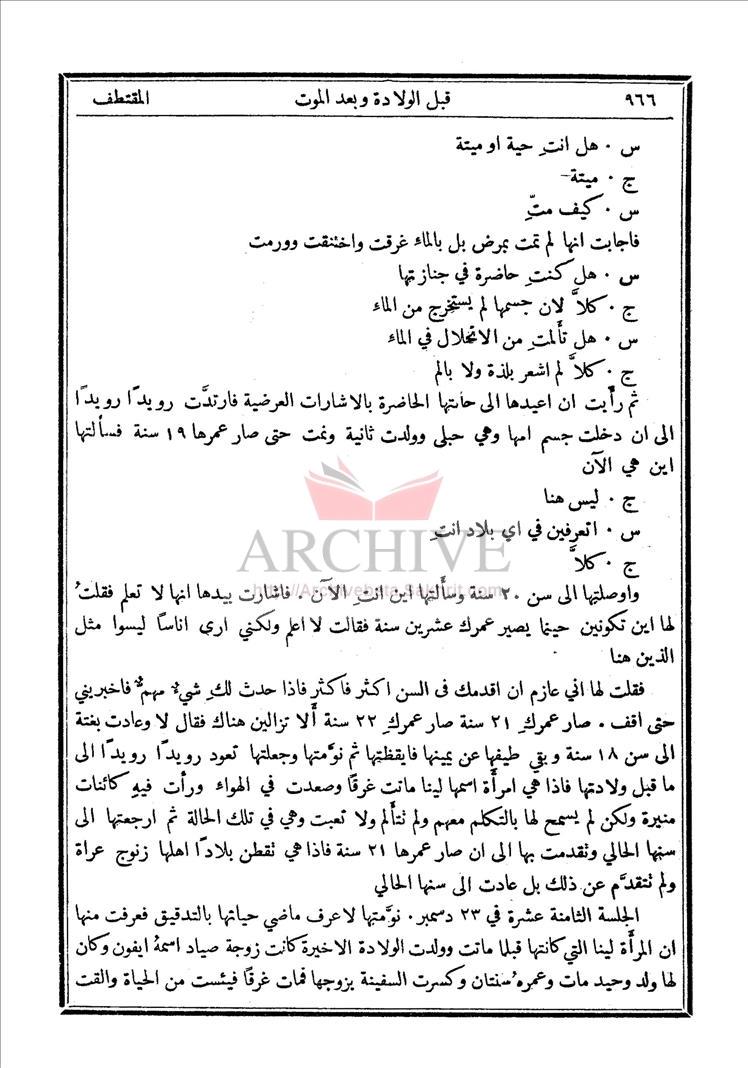 ٩٦٦ قبل الولادة وبعد الموت المقتطف
س ٠ هل انتِ حية او ميتة
ج ٠ ميتة
س ٠ كيف متِّ
فاجابت انها لم تمت بمرض بل بالماء غرقت واختنقت وورمت
س ٠ هل كنتِ حاضرة في جنازتها
ج ٠ كلاَّ لان جسمها لم يستخرج من الماء
س ٠ هل تأَلمتِ من الانحلال في الماء
ج ٠ كلاَّ لم اشعر بلذة ولا بالم
ثم رأَيت ان اعيدها الى حالتها الحاضرة بالاشارات العرضية فارتدَّت رويدًا رويدًا
الى ان دخلت جسم امها وهي حبلى وولدت ثانية ونمت حتى صار عمرها ١٩ سنة فسألتها
اين هي الآن
ج ٠ ليس هنا
س ٠ اتعرفين في اي بلاد انتِ
ARCHIVE
ج ٠ كلاَّ
http://Archivebeta.Sakhrit.com
واوصلتها الى سن ٢٠ سنة وسأَلتها اين انتِ الآن ٠ فاشارت بيدها انها لا تعلم فقلتُ
لها اين تكونين حينما يصير عمرك عشرين سنة فقالت لا اعلم ولكني ارى اناسًا ليسوا مثل
الذين هنا
فقلت لها اني عازم ان اقدمك فى السن اكثر فاكثر فاذا حدث لكِ شيءٌ مهمٌّ فاخبريني
حتى اقف ٠ صار عمركِ ٢١ سنة صار عمركِ ٢٢ سنة أَلا تزالين هناك فقال لا وعادت بغتة
الى سن ١٨ سنة وبقي طيفها عن يمينها فايقظتها ثم نوَّمتها وجعلتها تعود رويدًا رويدًا الى
ما قبل ولادتها فاذا هي امرأَة اسمها لينا ماتت غرقًا وصعدت في الهواء ورأت فيهِ كائنات
منيرة ولكن لم يسمح لها بالتكلم معهم ولم نتأَلم ولا تعبت وهي في تلك الحالة ثم ارجعتها الى
سنها الحالي ونقدمت بها الى ان صار عمرها ٢١ سنة فاذا هي تقطن بلادًا اهلها زنوج عراة
ولم نتقدَّم عن ذلك بل عادت الى سنها الحالي
الجلسة الثامنة عشرة في ٢٣ دسمبر ٠ نوَّمتها لاعرف ماضي حياتها بالتدقيق فعرفت منها
ان المرأَة لينا التي كانتها قبلما ماتت وولدت الولادة الاخيرة كانت زوجة صياد اسمهُ ايفون وكان
لها ولد وحيد مات وعمرهُ سنتان وكسرت السفينة بزوجها فمات غرقًا فيئست من الحياة والقت